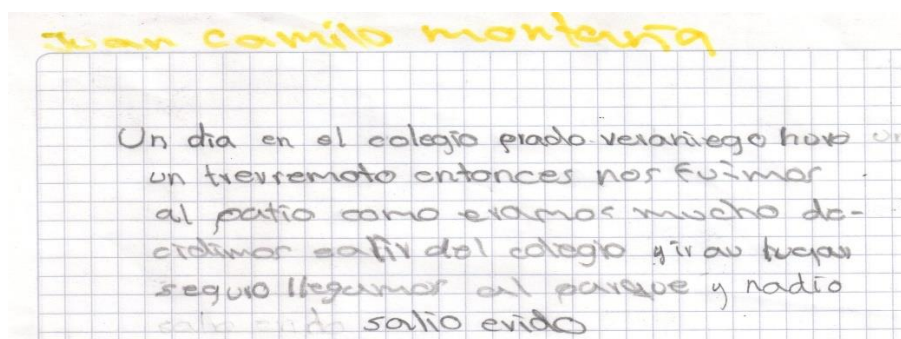 Juan camilo montaña
Un dia en el colegio prado veraniego hovo un
un trerremoto entonces nos fuimos
al patio como eramos mucho de-
cidimos salir del colegio y ir au lugar
seguro llegamos al parque y nadio
salio erido